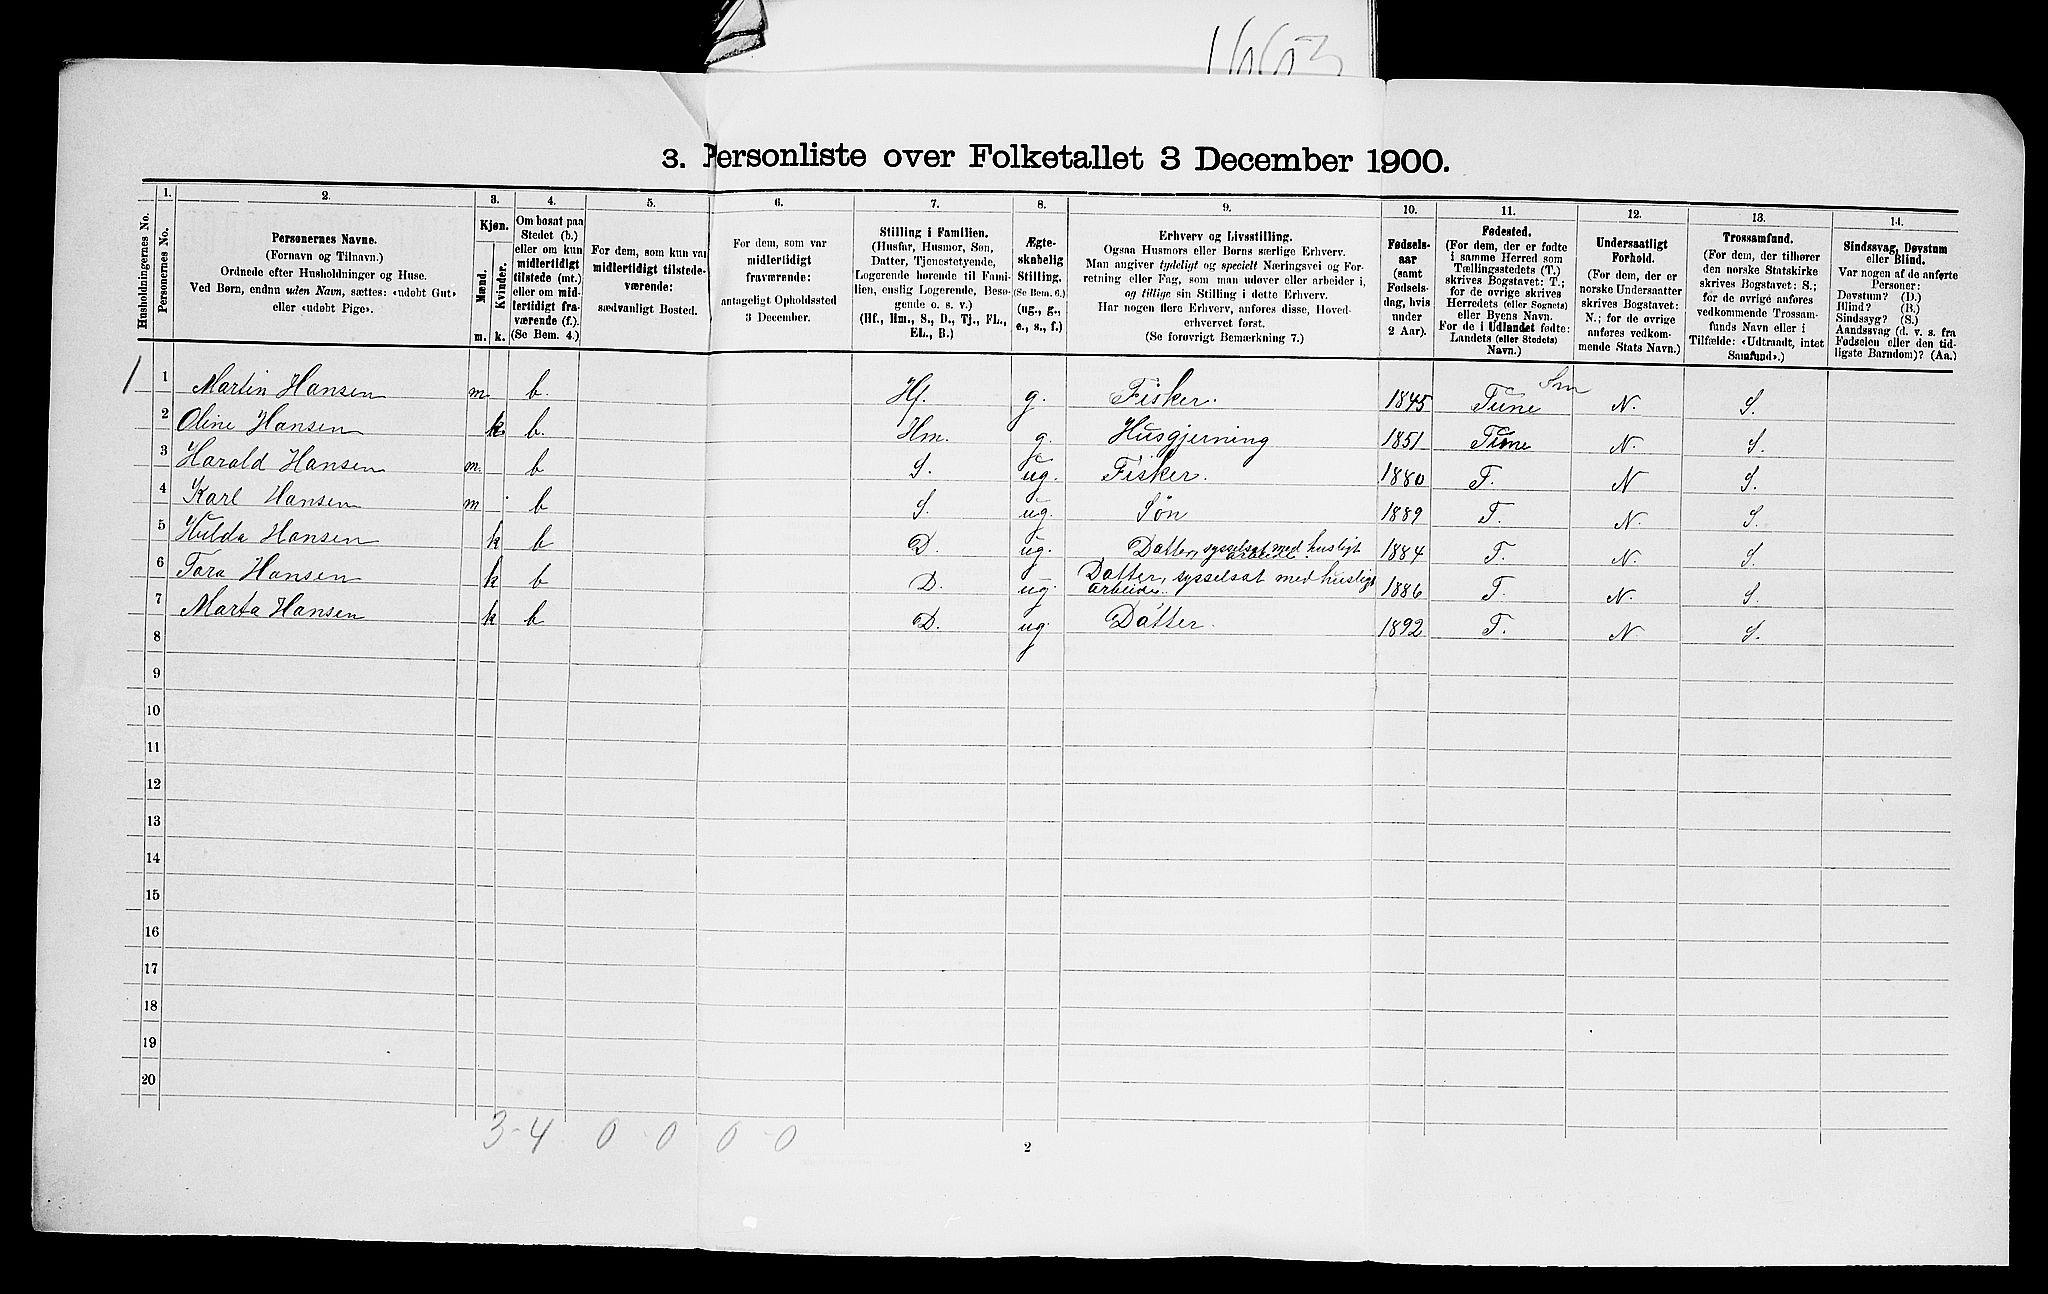 1663
3. Personliste over Folketallet 3 December 1900.
Husholdningernes No.
1. Personernes No.
2.
Personernes Navne.
(Fornavn og Tilnavn.)
Ordnede efter Husholdninger og Huse.
Ved Børn, endnu uden Navn, sættes: «udøbt Gut»
eller «udøbt Pige».
3.
Kjøn.
Mænd. Kvinder.
m. k.
4.
Om bosat paa
Stedet (b.)
eller om kun
midlertidigt
tilstede (mt.)
eller om mid-
lertidigt fra-
værende (f.).
(Se Bem. 4.)
5.
For dem, som kun var
midlertidigt tilstede-
værende:
sædvanligt Bosted.
6.
For dem, som var
midlertidigt
fraværende:
antageligt Opholdssted
3 December.
7.
Stilling i Familien.
(Husfar, Husmor, Søn,
Datter, Tjenestetyende,
Logerende hørende til Fami-
lien, enslig Logerende, Besø-
gende o. s. v.)
(Hf., Hm., S., D., Tj., FL.,
EL., B.)
8.
Ægte-
skabelig
Stilling.
(Se Bem. 6.)
(ug., g.,
e., s., f.)
9.
Erhverv og Livsstilling.
Ogsaa Husmors eller Børns særlige Erhverv.
Man angiver tydeligt og specielt Næringsvei og For-
retning eller Fag, som man udøver eller arbeider i,
og tillige sin Stilling i dette Erhverv.
Har nogen flere Erhverv, anføres disse, Hoved-
erhvervet først.
(Se forøvrigt Bemærkning 7.)
10.
Fødsels-
aar
(samt
Fødsels-
dag, hvis
under
2 Aar).
11.
Fødested.
(For dem, der er fødte
i samme Herred som
Tællingsstedets (T.)
skrives Bogstavet: T.;
for de øvrige skrives
Herredets (eller Sognets)
eller Byens Navn.
For de i Udlandet fødte:
Landets (eller Stedets)
Navn.)
12.
Undersaatligt
Forhold.
(For dem, der er
norske Undersaatter
skrives Bogstavet:
N.; for de øvrige
anføres vedkom-
mende Stats Navn.)
13.
Trossamfund.
(For dem, der tilhører
den norske Statskirke
skrives Bogstavet: S.;
for de øvrige anføres
vedkommende Trossam-
funds Navn eller i
Tilfælde: «Udtraadt, intet
Samfund».)
14.
Sindssvag, Døvstum
eller Blind.
Var nogen af de anførte
Personer:
Døvstum? (D.)
Blind? (B.)
Sindssyg? (S.)
Aandssvag (d. v. s. fra
Fødselen eller den tid-
ligste Barndom)? (Aa.)
Sm
1 1 Martin Hansen m b. Hf. g. Fisker. 1845 Tune N. S.
2 Oline Hansen k b. Hm. g. Husgjerning 1851 Tune N. S.
3 Harald Hansen m. b S. ug. Fisker. 1880 T. N S.
4 Karl Hansen m b S. ug. Søn 1889 T. N. S.
5 Hulda Hansen k b D. ug. Datter, sysselsat med husligt 1884 T. N. S.
arbeide.
6 Tora Hansen k b D. ug. Datter, sysselsat med husligt 1886 T. N. S.
arbeide.
7 Marta Hansen k b D. ug. Datter. 1892 T. N S.
8
9
10
11
12
13
14
15
16
17
18
19
20
3-4 0-0 0-0
2